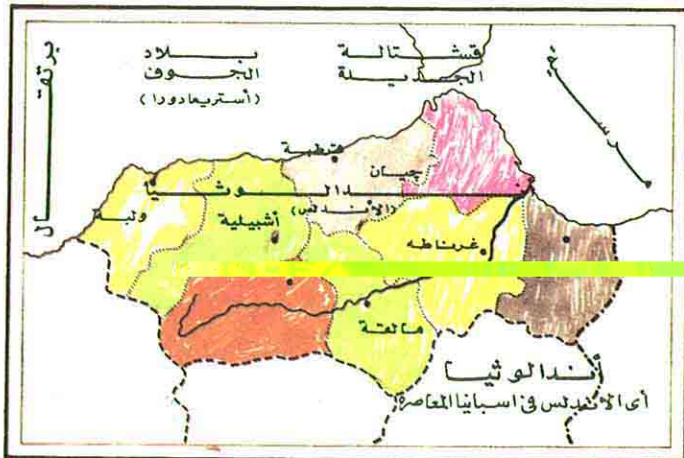 برتغـــال
بــلاد
الجــوف
(أستريمادورا)
قشتالة
الجديدة
مرسية
قرطبة
جيان
أندالــوثيــا
(الأندلس)
ولبة
أشبيلية
غرناطه
مالقة
أندالوثيا
أى الاندلس فى اسبانيا المعاصرة